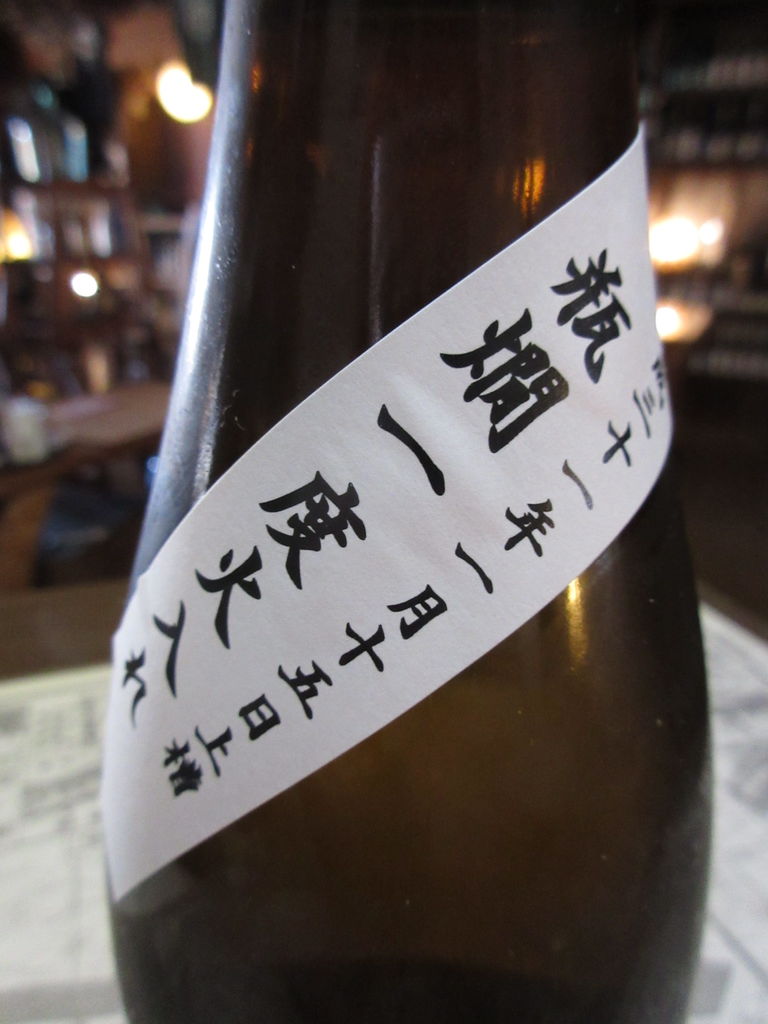 瓶燗一度火入れ
三十一年一月十五日上槽